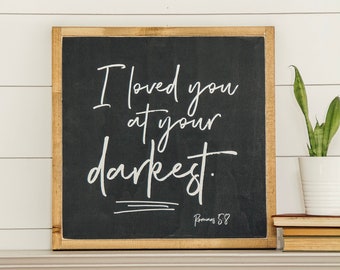 I loved you
at your
darkest.
Romans 5:8